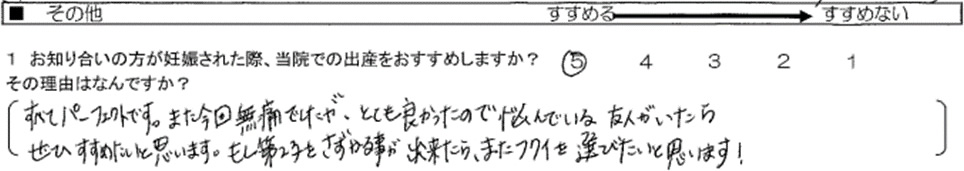 ■ その他 すすめる すすめない
1 お知り合いの方が妊娠された際、当院での出産をおすすめしますか? 5 4 3 2 1
その理由はなんですか?
すべてパーフェクトです。また今回無痛でしたが、とても良かったので悩んでいる友人がいたら
ぜひすすめたいと思います。もし第2子をさずかる事が出来たら、またフクイを選びたいと思います!